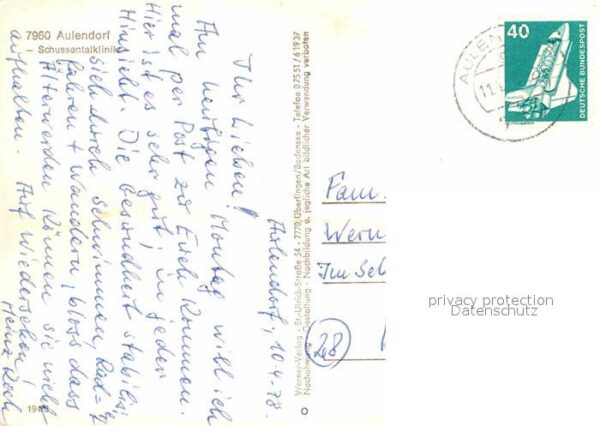 7960 Aulendorf
Schussentalklinik
Aulendorf, 10.4.78.
Ihr Lieben!
Am heutigen Montag will ich
mal per Post zu Euch kommen.
Hier ist es sehr gut, in jeder
Hinsicht. Die Gesundheit stabilis.
sich durch Schwimmen, Rad=
fahren + Wandern, bloss dass
Älterwerden können sie nicht
aufhalten. Auf Wiedersehen!
Heinz Koch
194
Werner-Verlag - St.-Ulrich-Straße 54 - 7770 Überlingen/Bodensee - Telefon 07551/61937
Nachahmung, Gestaltung, Nachbildung u. jegliche Art bildlicher Verwendung verboten
40
DEUTSCHE BUNDESPOST
AULEN
11.
Fam.
Wern
Im Sch
(28)
privacy protection
Datenschutz